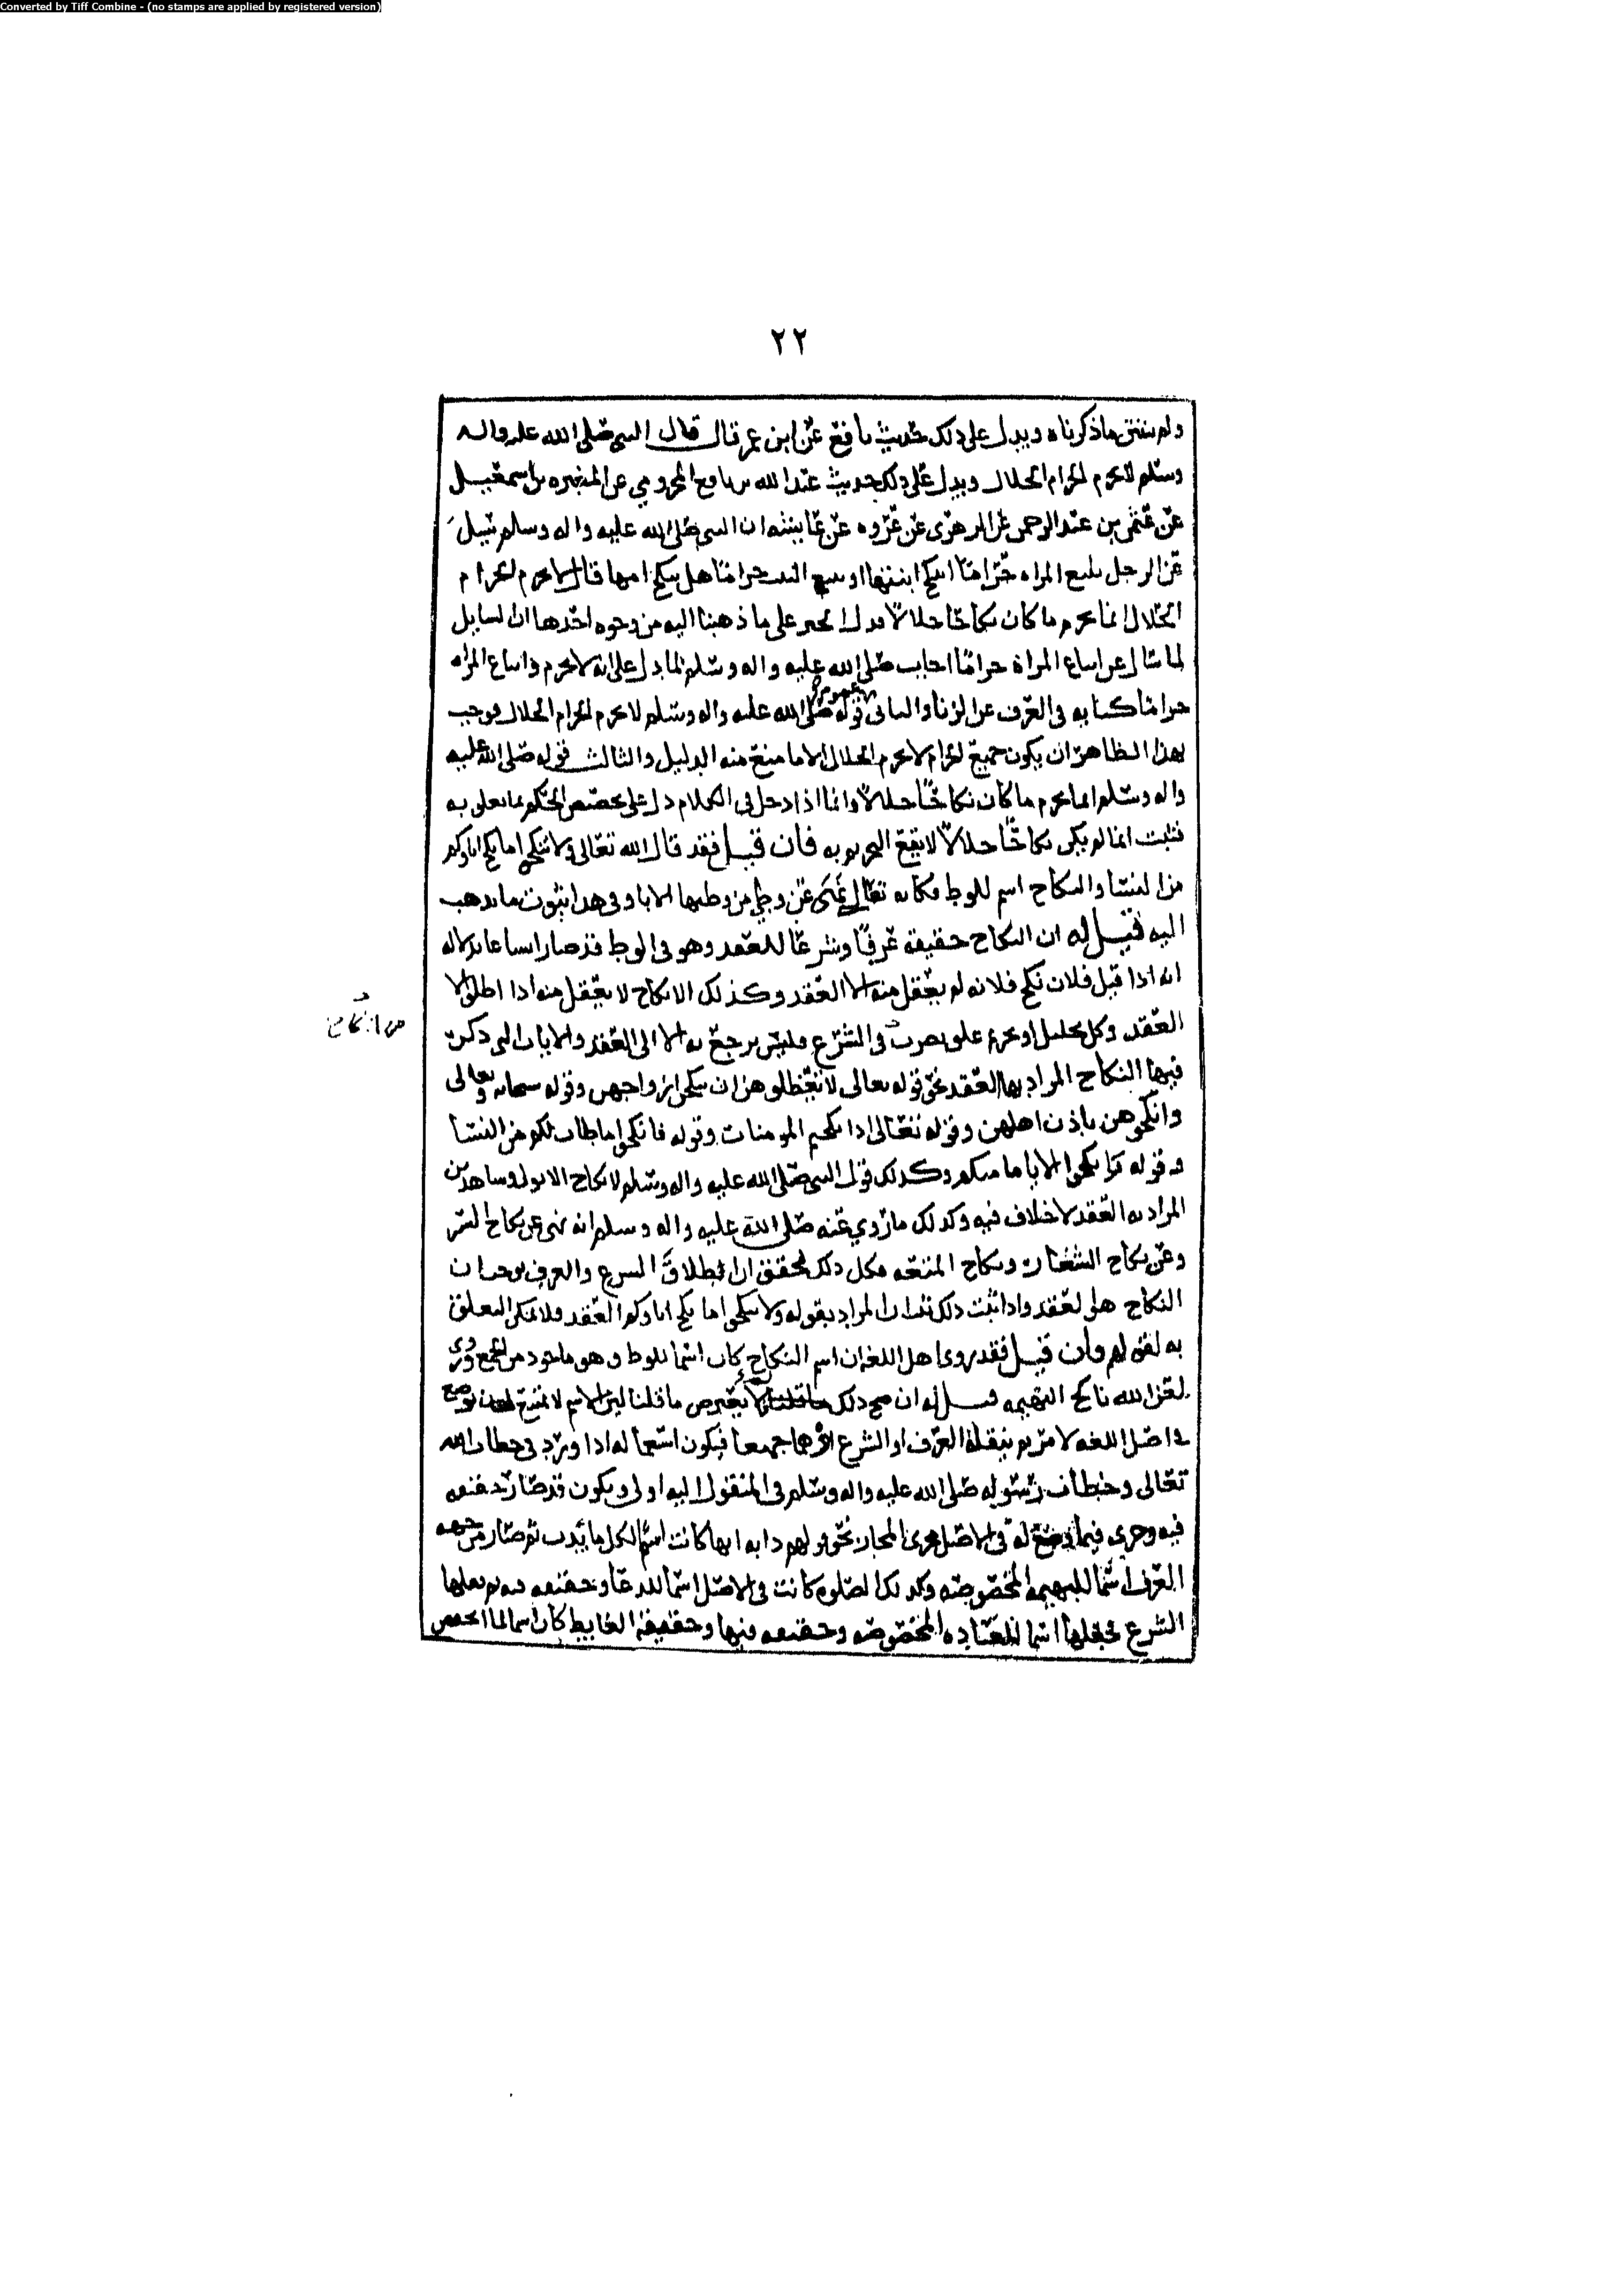 Converted by Tiff Combine - (no stamps are applied by registered version)
٢٢
ولم ينتف ما ذكرناه ويدل على ذلك حديث نافع عن ابن عمر قال قال النبي صلى الله عليه واله
وسلم لا يحرم الحرام الحلال ويدل على ذلك حديث عبدالله بن نافع المخزومي عن المغيره بن اسمعيل
عن عثمن بن عبدالرحمن عن الزهري عن عروه عن عايشه ان النبي صلى الله عليه واله وسلم سيل
عن الرجل يتبع المراه حراما اينكح ابنتها او يتبع البنت حراما هل ينكح امها قال لا يحرم الحرام
الحلال انما يحرم ما كان نكاحا حلالا فدل الخبر على ما ذهبنا اليه من وجوه احدها ان السايل
لما سال عن اتباع المراة حراما اجاب صلى الله عليه واله وسلم بما دل على انه لا يحرم واتباع المراه
حراما كنايه في العرف عن الزنا والثاني عموم قوله صلى الله عليه واله وسلم لا يحرم الحرام الحلال فوجب
بهذا الظاهر ان يكون جميع الحرام لا يحرم الحلال الا ما منع منه الدليل والثالث قوله صلى الله عليه
واله وسلم انما يحرم ما كان نكاحا حلالا وانما اذا دخل في الكلام دل على تخصيص الحكم بما تعلق به
فثبت ان ما لم يكن نكاحا حلالا لا يقع التحريم به فان قيل فقد قال الله تعالى ولا تنكحوا ما نكح اباوكم
من النسا والنكاح اسم للوط فكانه تعالى نهى عن وطي من وطيها الابا وفي هذا ثبوت ما نذهب
اليه قيل له ان النكاح حقيقه عرفا وشرعا للعقد وهو في الوط قد صار اتساعا بدلاله
انه اذا قيل فلان نكح فلانه لم يعقل منه الا العقد وكذلك الانكاح لا يعقل منه اذا اطلق الا
العقد وكل تحليل او تحريم علق بضرب في الشرع فليس يرجع به الا الى العقد والايات التي ذكرت
من النكاح
فيها النكاح المراد بها العقد نحو قوله تعالى لا تعضلوهن ان ينكحن ازواجهن وقوله سبحانه وتعالى
وانكحوهن باذن اهلهن وقوله تعالى اذا نكحتم المومنات وقوله فانكحوا ما طاب لكم من النسا
وقوله وانكحوا الايامى منكم وكذلك قول النبي صلى الله عليه واله وسلم لا نكاح الا بولي وشاهدين
المراد به العقد لا خلاف فيه وكذلك ما روي عنه صلى الله عليه واله وسلم انه نهى عن نكاح السر
وعن نكاح الشغار ونكاح المتعه فكل ذلك يحقق ان اطلاق الشرع والعرف يوجبان
النكاح هو العقد واذا ثبت ذلك ثبت ان المراد بقوله ولا تنكحوا ما نكح اباوكم العقد فلا يمكن التعلق
به لقولهم وان قيل فقد روى اهل اللغه ان اسم النكاح كان اسما للوط وهو ماخوذ من الجمع وروي
لعن الله ناكح البهيمه قيل له ان صح ذلك لم يعترض ما قلنا لان الاسم لا يمتنع ان يوضع
في اصل اللغه لامر ثم ينقله العرف او الشرع او هما جميعا فيكون استعماله اذا ورد في خطاب الله
تعالى وخطاب رسوله صلى الله عليه واله وسلم في المنقول اليه اولى ويكون قد صار حقيقه
فيه وجرى فيما وضع له في الاصل مجرى المجاز نحو قولهم دابه انها كانت اسما لكل ما يدب ثم صار من جهه
العرف اسما للبهيمه المخصوصه وكذلك الصلوه كانت في الاصل اسما للدعا وحقيقه فيه ثم نقلها
الشرع فجعلها اسما للعباده المخصوصه وحقيقه فيها وحقيقة الغايط كان اسما لما انخفض